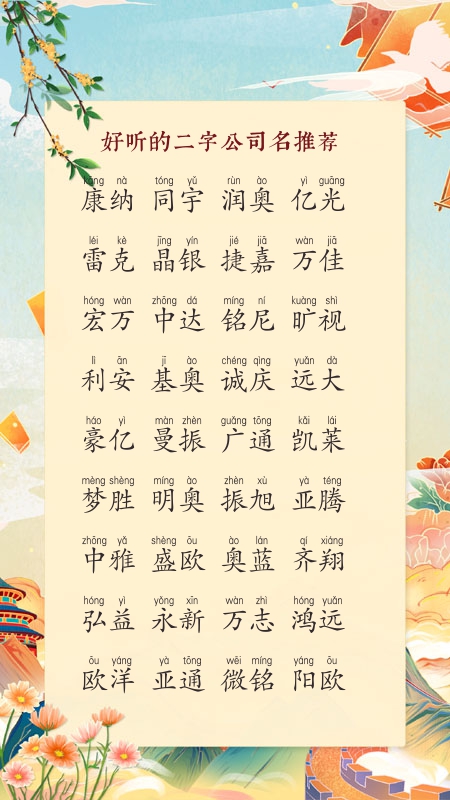 好听的二字公司名推荐
kāng nà tóng yǔ rùn ào yì guāng
康纳 同宇 润奥 亿光
léi kè jīng yín jié jiā wàn jiā
雷克 晶银 捷嘉 万佳
hóng wàn zhōng dá míng ní kuàng shì
宏万 中达 铭尼 旷视
lì ān jī ào chéng qìng yuǎn dà
利安 基奥 诚庆 远大
háo yì màn zhèn guǎng tōng kǎi lái
豪亿 曼振 广通 凯莱
mèng shèng míng ào zhèn xù yà téng
梦胜 明奥 振旭 亚腾
zhōng yǎ shèng ōu ào lán qí xiáng
中雅 盛欧 奥蓝 齐翔
hóng yì yǒng xīn wàn zhì hóng yuǎn
弘益 永新 万志 鸿远
ōu yáng yà tōng wēi míng yáng ōu
欧洋 亚通 微铭 阳欧